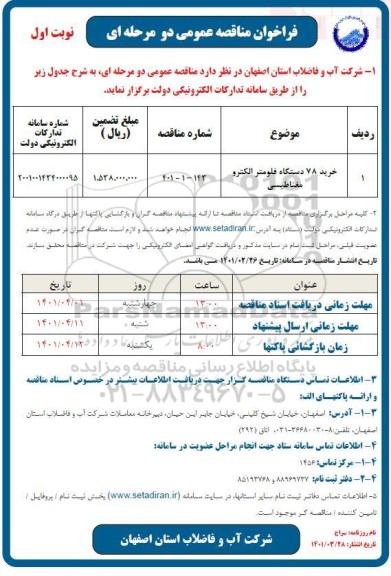 فراخوان مناقصه عمومی دو مرحله ای
نوبت اول
۱- شرکت آب و فاضلاب استان اصفهان در نظر دارد مناقصه عمومی دو مرحله ای، به شرح جدول زیر
را از طریق سامانه تدارکات الکترونیکی دولت برگزار نماید.
ردیف موضوع شماره مناقصه مبلغ تضمین (ریال) شماره سامانه تدارکات الکترونیکی دولت
۱ خرید ۷۸ دستگاه فلومتر الکترو مغناطیسی ۴۰۱-۱-۱۴۳ ۱,۵۳۸,۰۰۰,۰۰۰ ۲۰۰۱۰۰۱۴۳۴۰۰۰۰۹۵
۲- کلیه مراحل برگزاری مناقصه از دریافت اسناد مناقصه تا ارائه پیشنهاد مناقصه گران و بازگشایی پاکتها از طریق درگاه سامانه
تدارکات الکترونیکی دولت (ستاد) به آدرس www.setadiran.ir انجام خواهد شد و لازم است مناقصه گران در صورت عدم
عضویت قبلی، مراحل ثبت نام در سایت مذکور و دریافت گواهی امضای الکترونیکی را جهت شرکت در مناقصه محقق سازند.
تاریخ انتشار مناقصه در سامانه: تاریخ ۱۴۰۱/۰۲/۲۶ می باشد.
عنوان ساعت روز تاریخ
مهلت زمانی دریافت اسناد مناقصه ۱۳:۰۰ چهارشنبه ۱۴۰۱/۰۴/۰۱
مهلت زمانی ارسال پیشنهاد ۱۳:۰۰ شنبه ۱۴۰۱/۰۴/۱۱
زمان بازگشائی پاکتها ۸:۰۰ یکشنبه ۱۴۰۱/۰۴/۱۲
ParsNamadData
پایگاه اطلاع رسانی مناقصه و مزایده
۰۲۱-۸۸۳۴۹۶۷۰-۵
۳- اطلاعات تماس دستگاه مناقصه گزار جهت دریافت اطلاعات بیشتر در خصوص اسناد مناقصه
و ارائه پاکتهای الف:
۳-۱- آدرس: اصفهان، خیابان شیخ کلینی، خیابان جابر ابن حیان، دبیرخانه معاملات شرکت آب و فاضلاب استان
اصفهان، تلفن: ۸-۰۳۱-۳۶۶۸۰۰۳۰، اتاق (۲۹۲)
۴- اطلاعات تماس سامانه ستاد جهت انجام مراحل عضویت در سامانه:
۴-۱- مرکز تماس: ۱۴۵۶
۴-۲- دفتر ثبت نام: ۸۸۹۶۹۷۳۷ و ۸۵۱۹۳۷۶۸
۵- اطلاعات تماس دفاتر ثبت نام سایر استانها، در سایت سامانه (www.setadiran.ir) بخش ثبت نام / پروفایل /
تامین کننده / مناقصه گر موجود است.
شرکت آب و فاضلاب استان اصفهان
نام روزنامه: سراج
تاریخ انتشار: ۱۴۰۱/۰۳/۲۸